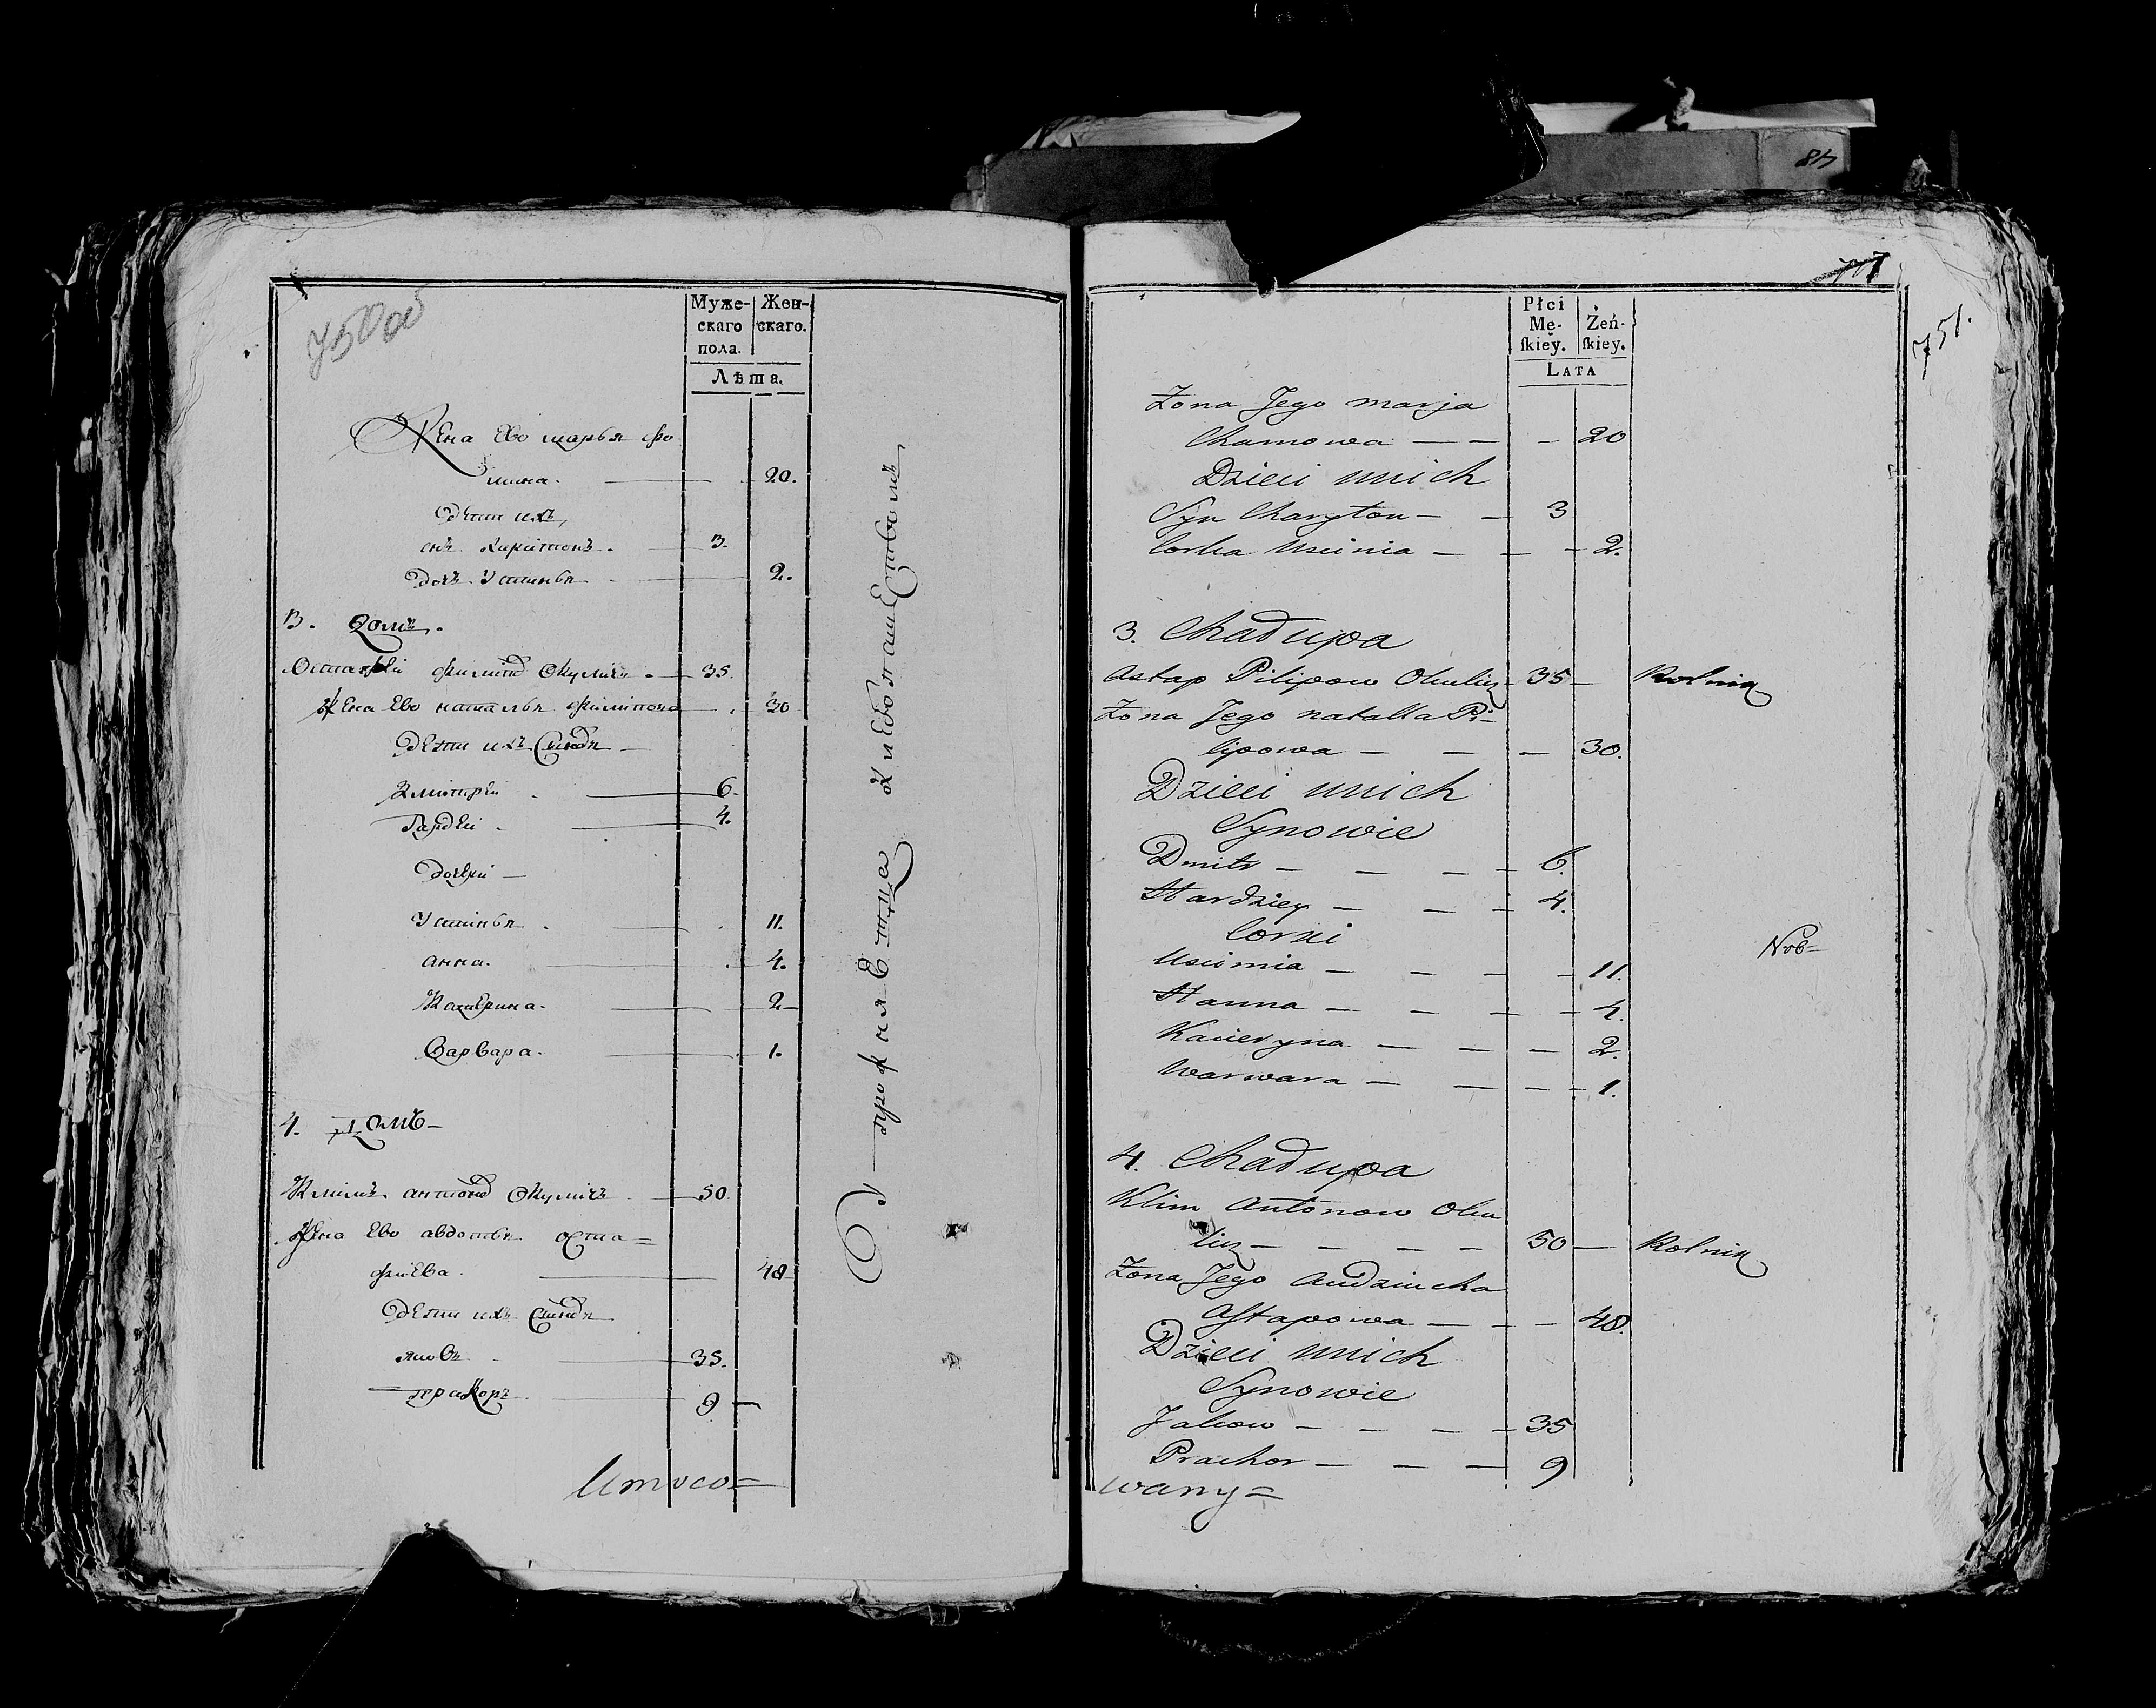 750об
Муже-
скаго
пола.
Жен-
скаго.
Лѣта.
Жена Ево марья Фо
мина. 20.
Дети ихъ
снъ Харитонъ. 3.
дочъ Устинья 2.
3. Домъ.
Остафеи Филипов Окуличъ. 35.
Жена Ево наталья Филипова 30
Дети ихъ Сыновья
Дмитреи 6.
Гардеи 4.
дочери
Устинья 11.
анна. 4.
Катерина. 2
Варвара. 1.
4. Домъ
Климъ антонов Окуличъ 50.
Жена Ево авдотья Оста=
фиева. 48
Дети ихъ Сыновья
яковъ 35.
прахоръ 9
Упрожняетца Хлебопашествомъ
Umoco=
48
751.
Płci
Mę-
ſkiey.
Żeń-
ſkiey.
LATA
Żona Jego marja
Chamowa — — — 20
Dzieci unich
Syn Charyton — — 3
Corka Uscinia — — — 2.
3. Chałupa
Astap Pilipow Okulicz 35 — Rolnik
Żona Jego natalla Pi-
lipowa — — — 30.
Dzieci unich
Synowie
Dmitr — — — — 6.
Hardziey — — — 4.
Corki
Uscinia — — — — 11.
Hanna — — — — 4.
Kacieryna — — — 2.
Warwara — — — — 1.
Nob=
4. Chałupa
Klim Antonow Oku
licz — — — — 50 — Rolnik
Żona Jego Audziucha
Astapowa — — — 48.
Dzieci unich
Synowie
Jakow — — — — 35
Prachor — — — 9
wany=